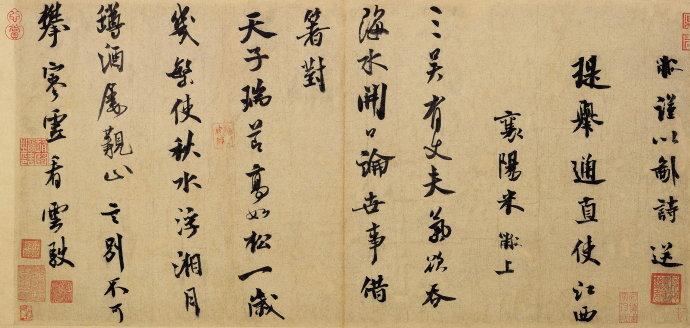 黻謹以鄙詩送
提舉通直使江西
襄陽米黻上
三吳有丈夫氣欲吞
海水開口論世事借
箸對
天子瑞節高如松一歲
幾繫使秋水浮湘月
罇酒屢覯止言別不可
攀寒雲看雲駛